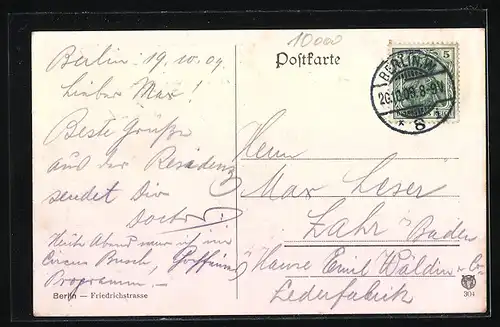 10000
Postkarte
5
BERLIN.W.
8-9V
* 8
Berlin. 19.10.09.
Lieber Max!
Beste Grüße
aus der Residenz
sendet Dir
Heute Abend war ich im
Circus Busch,
Programm. —
Herrn
Max Leser
Lahr i/Baden
Hause Emil Waldin & Co.
Lederfabrik
Berlin — Friedrichstrasse
304